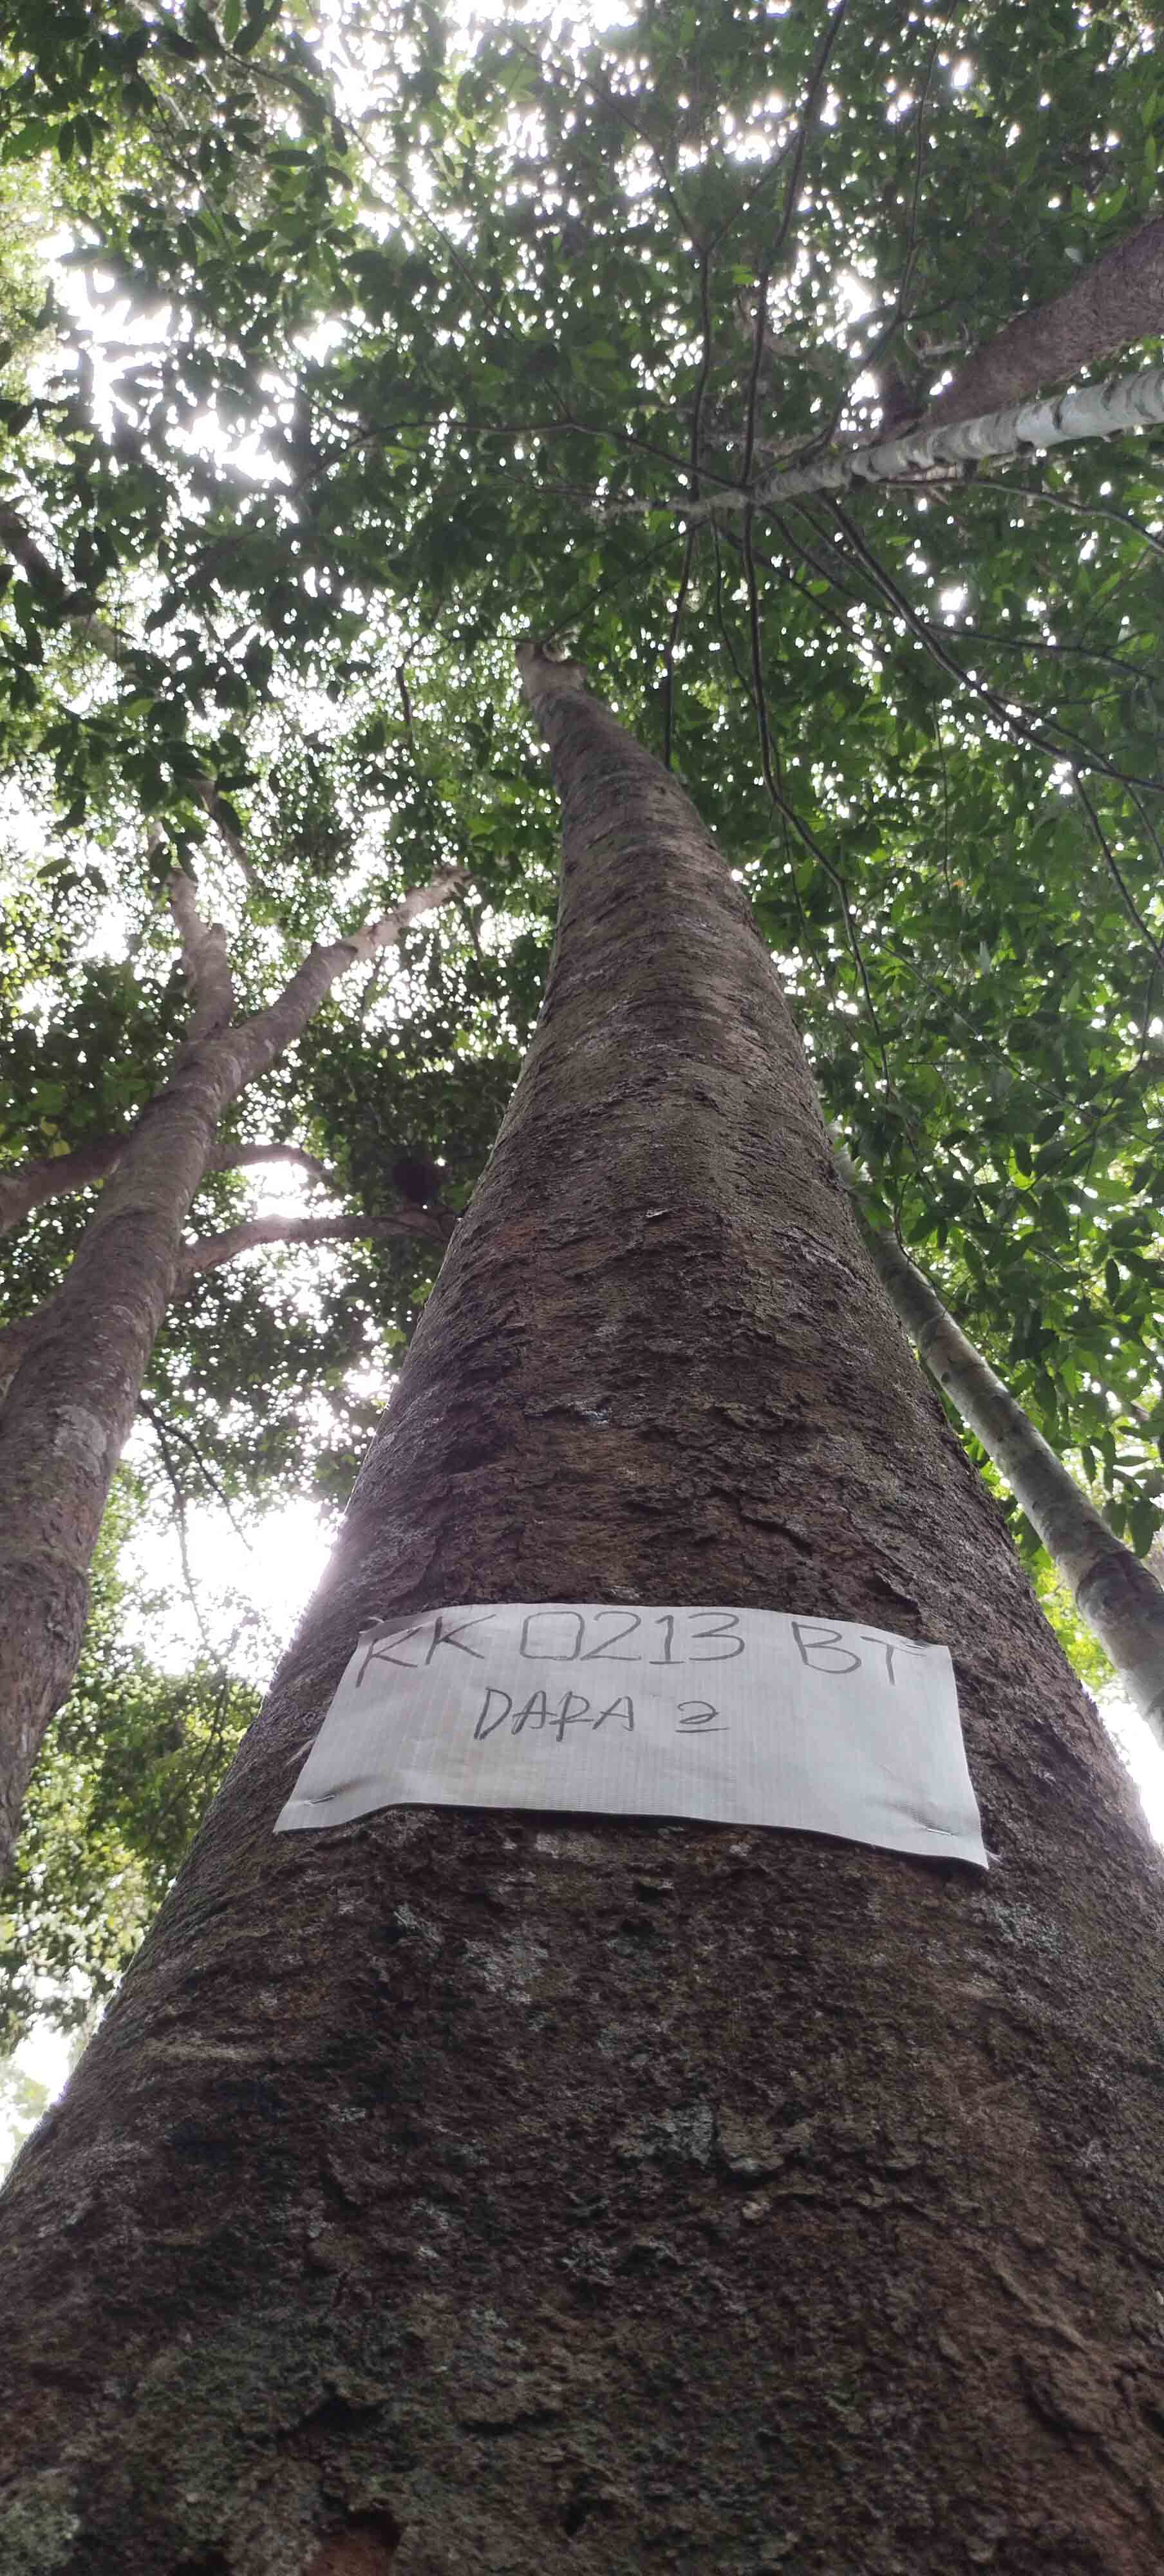 KK 0213 BT
DARA 2